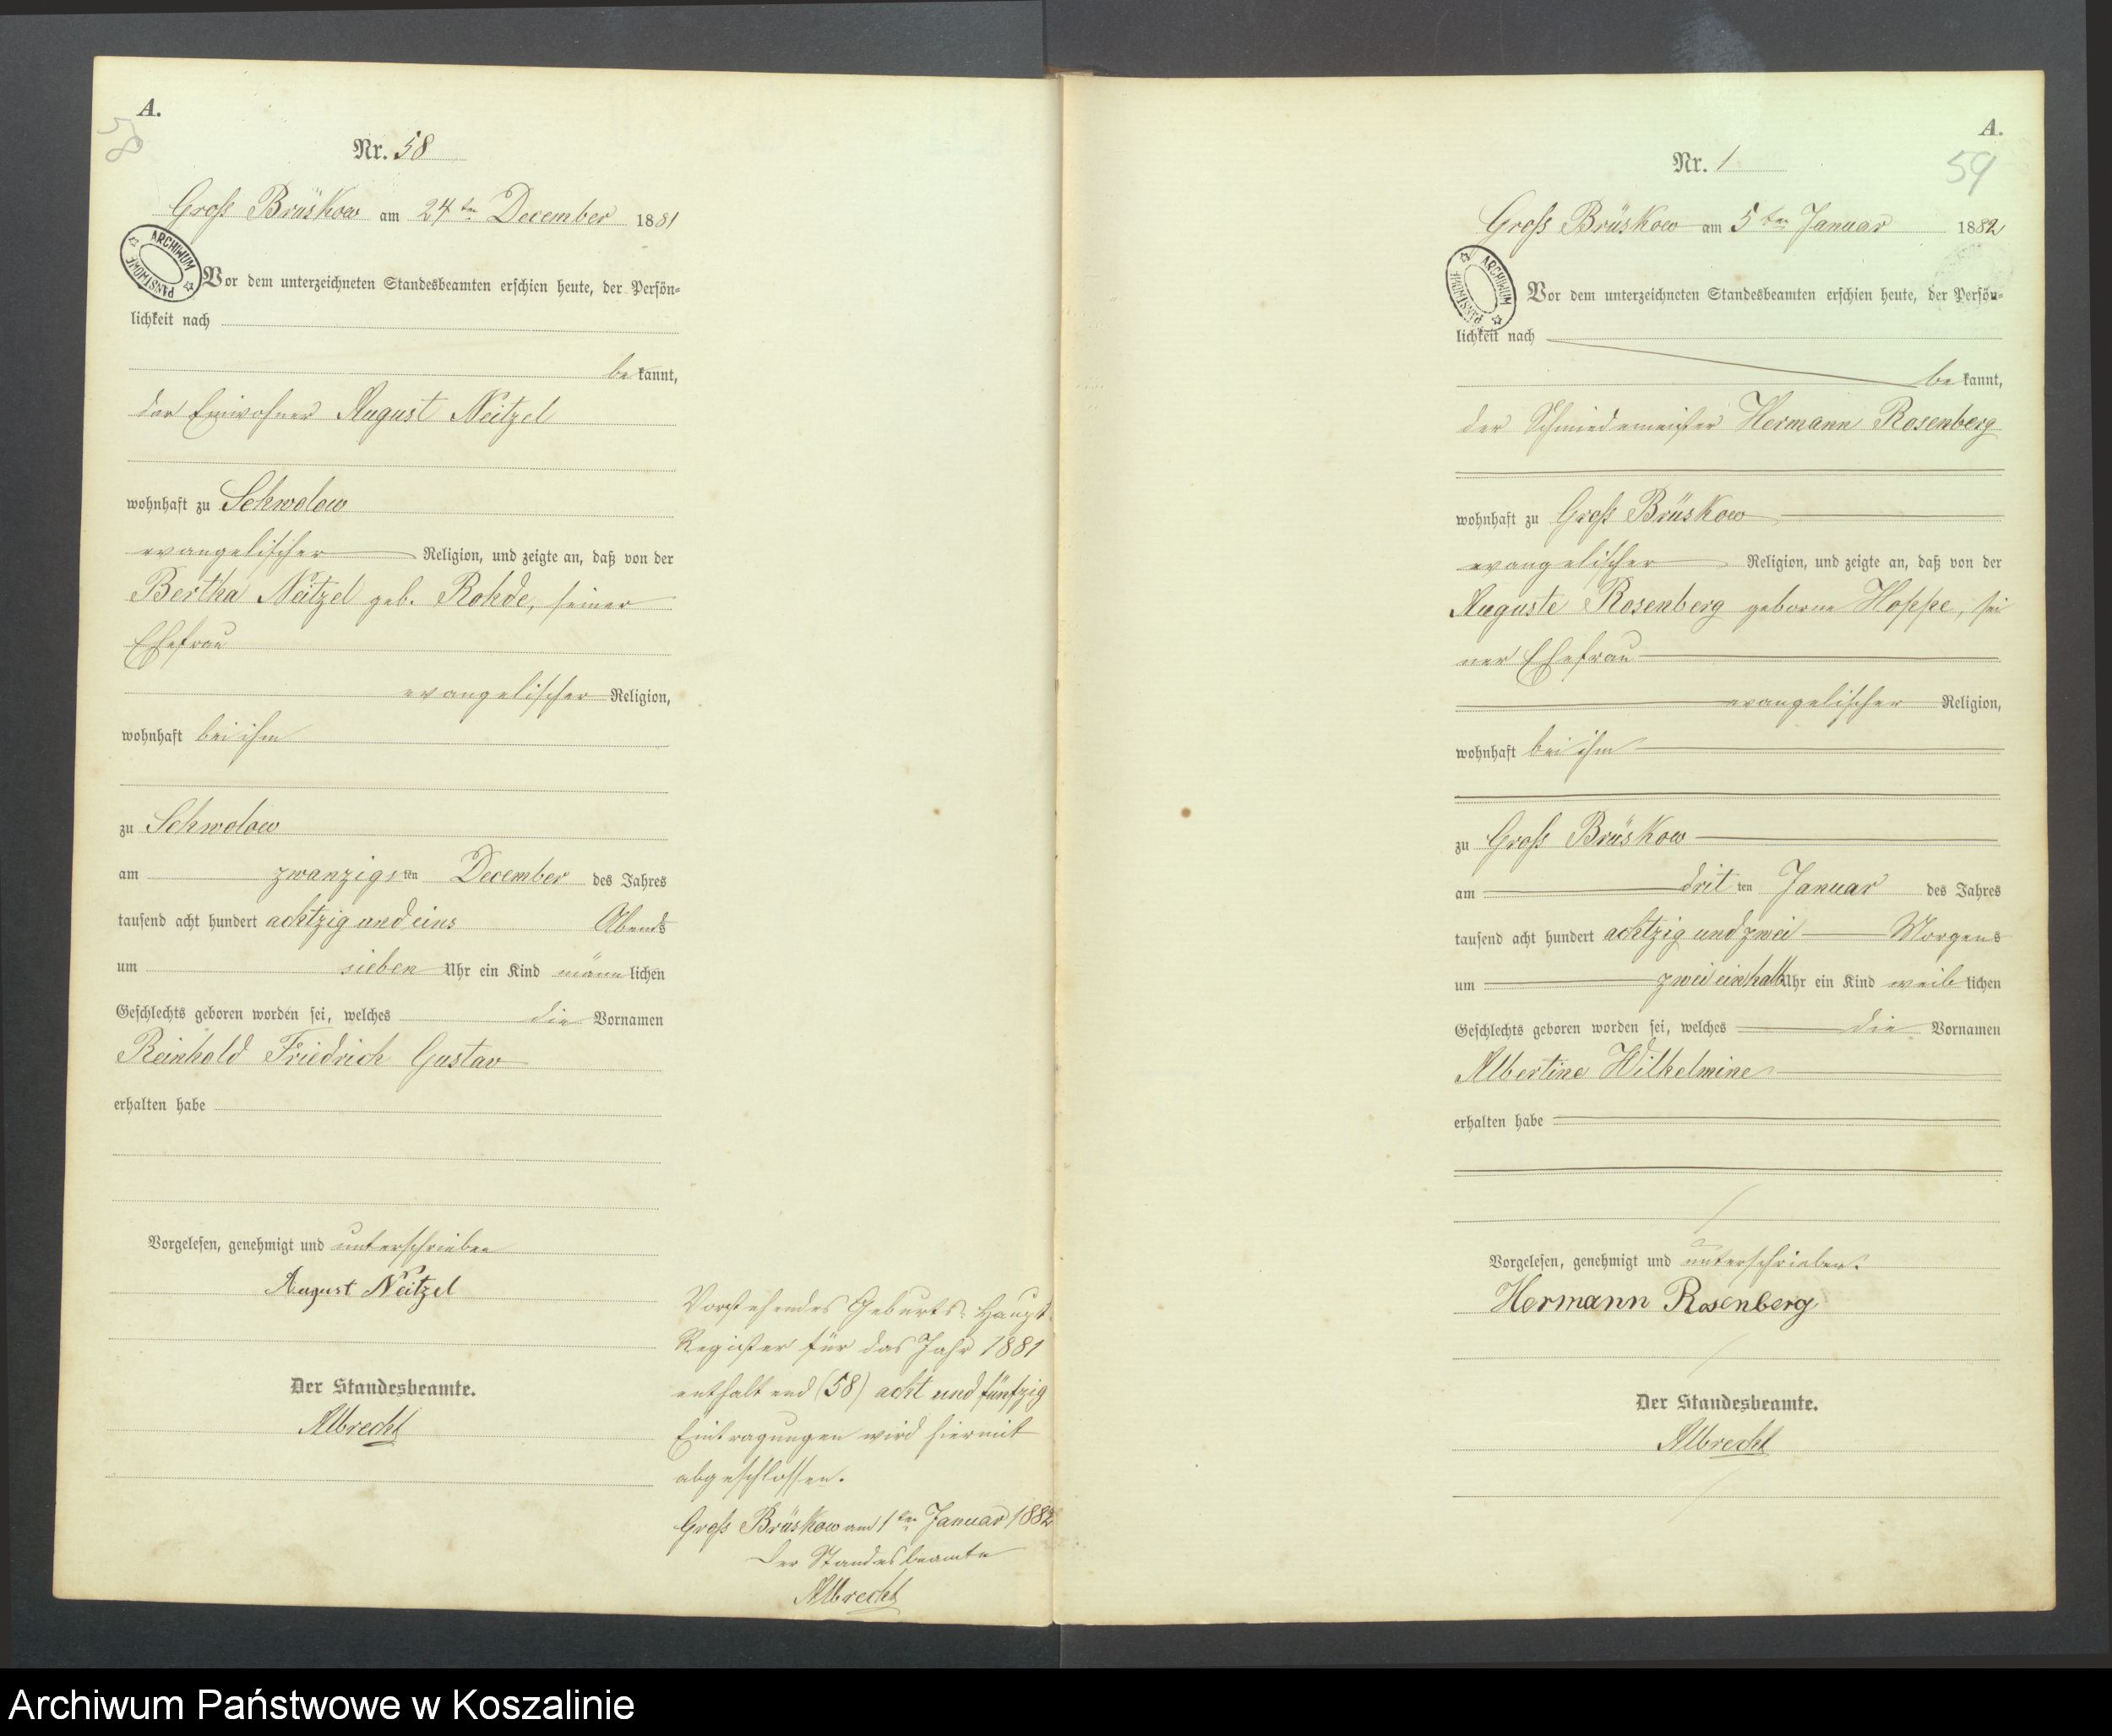 A.
58
Nr. 58
Groß Brüskow am 24ten December 1881
ARCHIWUM PAŃSTWOWE
Vor dem unterzeichneten Standesbeamten erschien heute, der Persön-
lichkeit nach
bekannt,
der Einwohner August Neitzel
wohnhaft zu Schwolow
evangelischer Religion, und zeigte an, daß von der
Bertha Neitzel geb. Rohde, seiner
Ehefrau
evangelischer Religion,
wohnhaft bei ihm
zu Schwolow
am zwanzigsten December des Jahres
tausend acht hundert achtzig und eins Abends
um sieben Uhr ein Kind männlichen
Geschlechts geboren worden sei, welches die Vornamen
Reinhold Friedrich Gustav
erhalten habe
Vorgelesen, genehmigt und unterschrieben
August Neitzel
Der Standesbeamte.
Albrecht
Vorstehendes Geburts-Haupt-
Register für das Jahr 1881
enthaltend (58) acht und fünfzig
Eintragungen wird hiermit
abgeschlossen.
Groß Brüskow am 1ten Januar 1882
Der Standesbeamte
Albrecht
A.
59
Nr. 1
Groß Brüskow am 5ten Januar 1882
ARCHIWUM PAŃSTWOWE
Vor dem unterzeichneten Standesbeamten erschien heute, der Persön-
lichkeit nach
bekannt,
der Schmiedemeister Hermann Rosenberg
wohnhaft zu Groß Brüskow
evangelischer Religion, und zeigte an, daß von der
Auguste Rosenberg geborne Hoppe, sei
ner Ehefrau
evangelischer Religion,
wohnhaft bei ihm
zu Groß Brüskow
am dritten Januar des Jahres
tausend acht hundert achtzig und zwei Morgens
um zwei einhalb Uhr ein Kind weiblichen
Geschlechts geboren worden sei, welches die Vornamen
Albertine Wilhelmine
erhalten habe
Vorgelesen, genehmigt und unterschrieben.
Hermann Rosenberg
Der Standesbeamte.
Albrecht
Archiwum Państwowe w Koszalinie